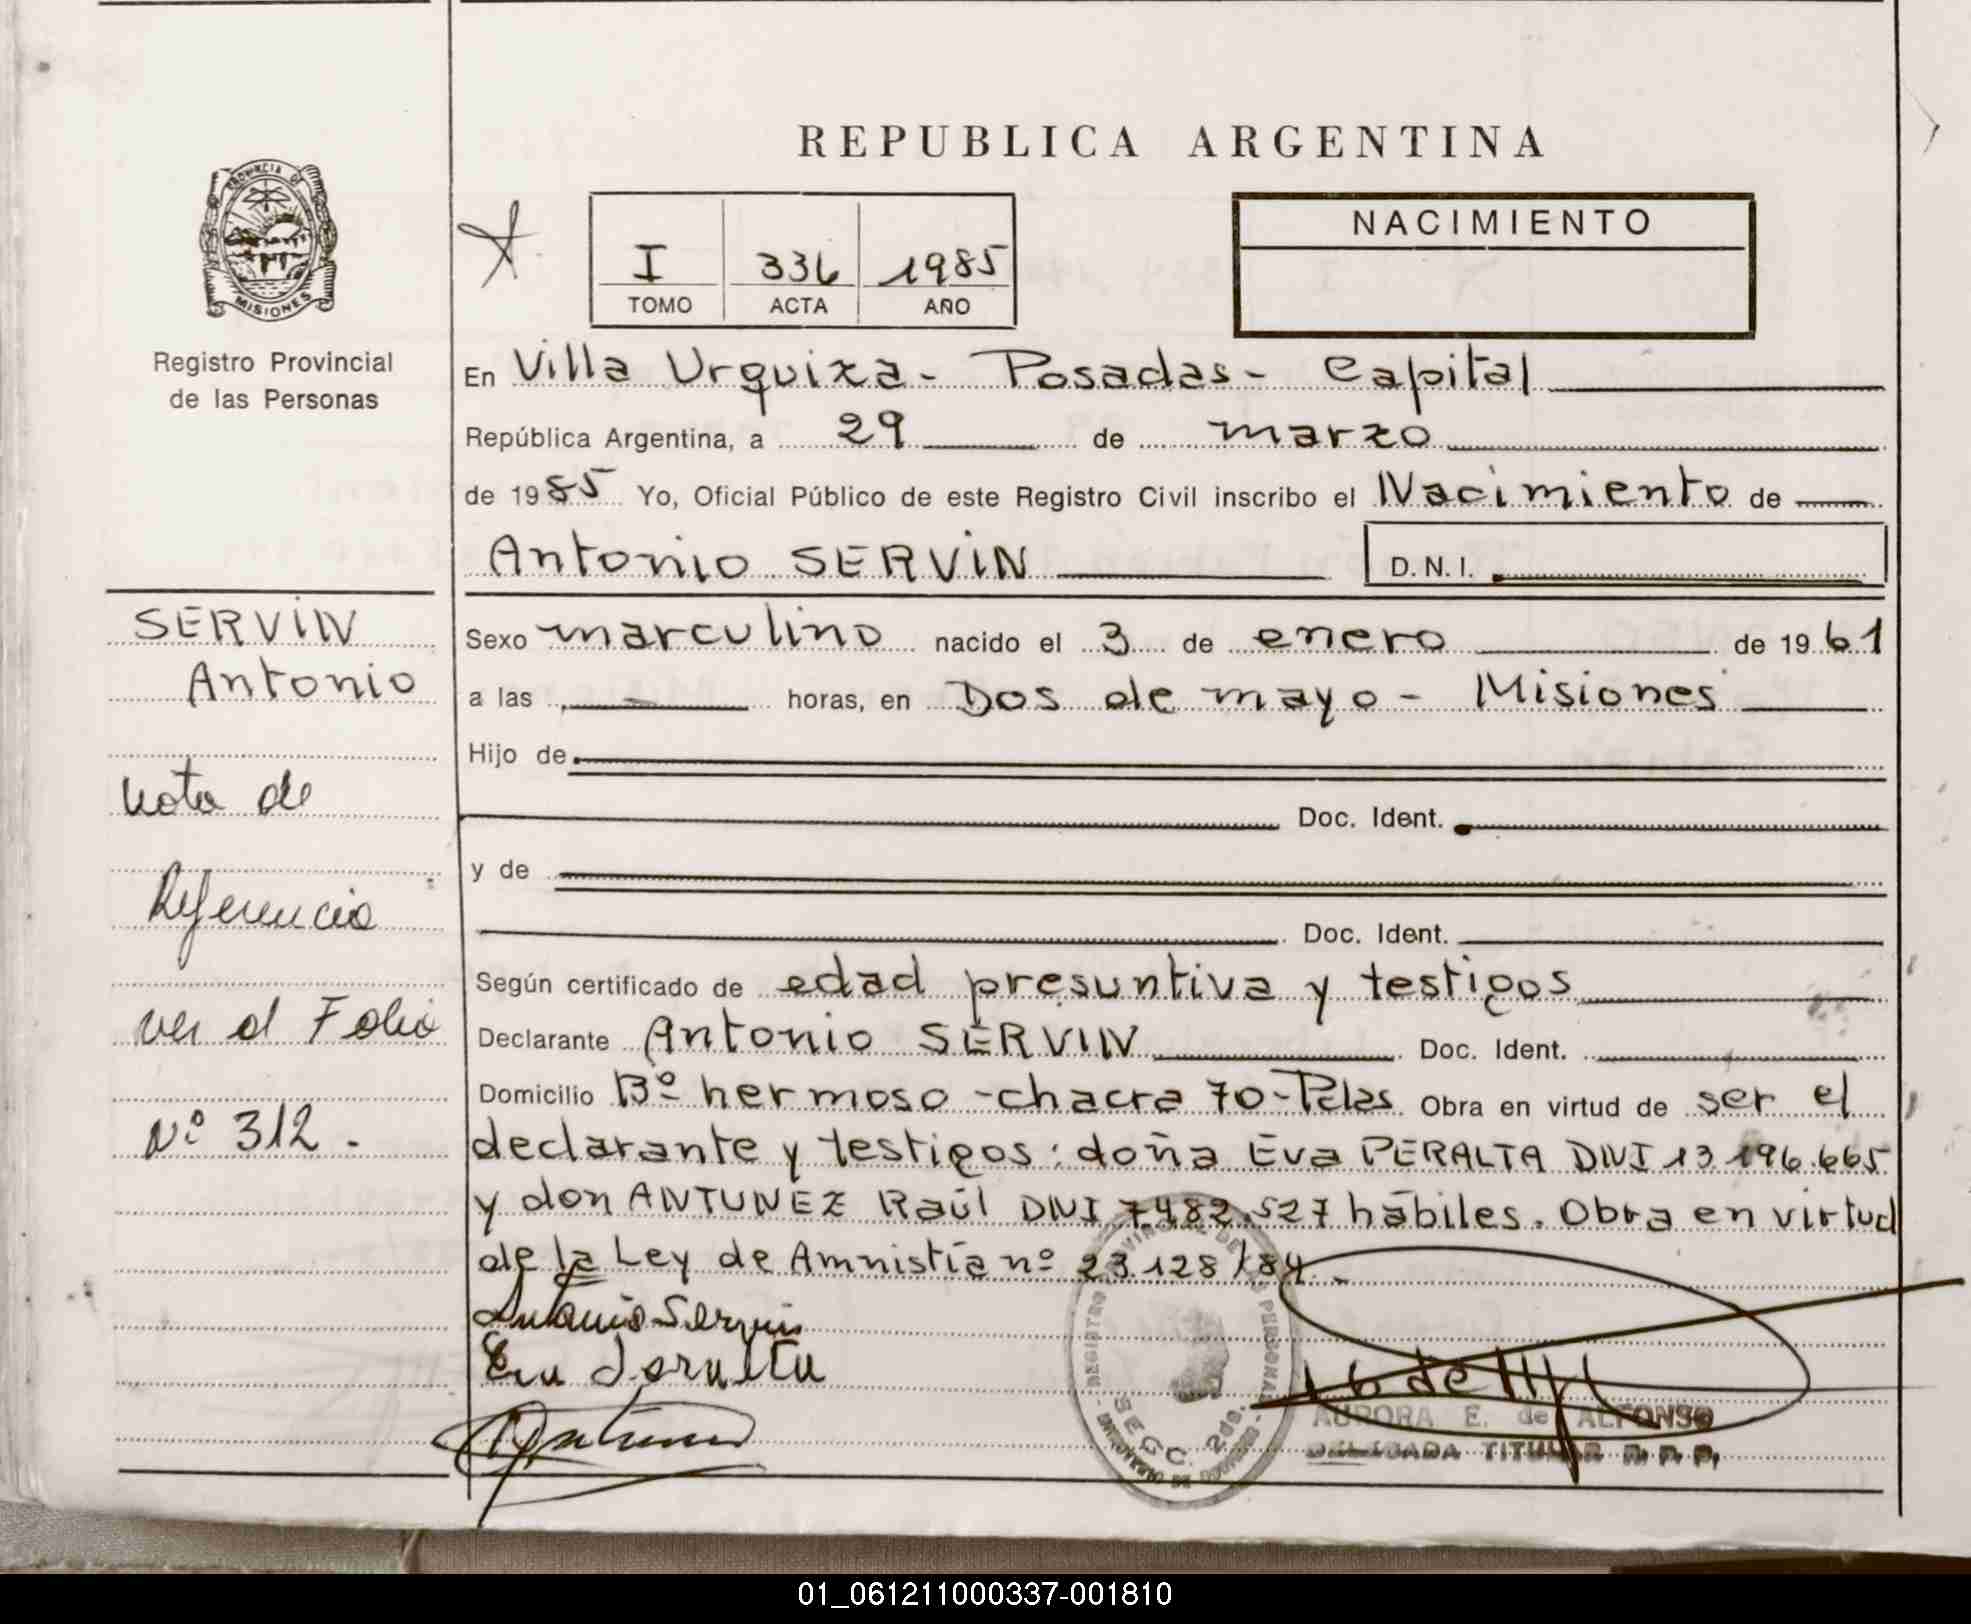 REPUBLICA ARGENTINA
PROVINCIA DE
MISIONES
Registro Provincial
de las Personas
I 336 1985
TOMO ACTA AÑO
NACIMIENTO
En Villa Urquiza - Posadas - Capital
República Argentina, a 29 de marzo
de 1985 Yo, Oficial Público de este Registro Civil inscribo el Nacimiento de
Antonio SERVIN D.N.I.
SERVIN
Antonio
Nota de
Referencia
ver el Folio
Nº 312.-
Sexo marculino nacido el 3 de enero de 1961
a las - horas, en Dos de mayo - Misiones
Hijo de
Doc. Ident.
y de
Doc. Ident.
Según certificado de edad presuntiva y testigos
Declarante Antonio SERVIN Doc. Ident.
Domicilio Bº hermoso - chacra 70 - Pdas Obra en virtud de ser el
declarante y testigos: doña Eva PERALTA DNI 13.196.665
y don ANTUNEZ Raúl DNI 7.482.527 hábiles. Obra en virtud
de la Ley de Amnistía nº 23.128/84.-
Antonio Servin
Eva Peralta
AURORA E. de ALFONSO
DELEGADA TITULAR R. P. P.
01_061211000337-001810